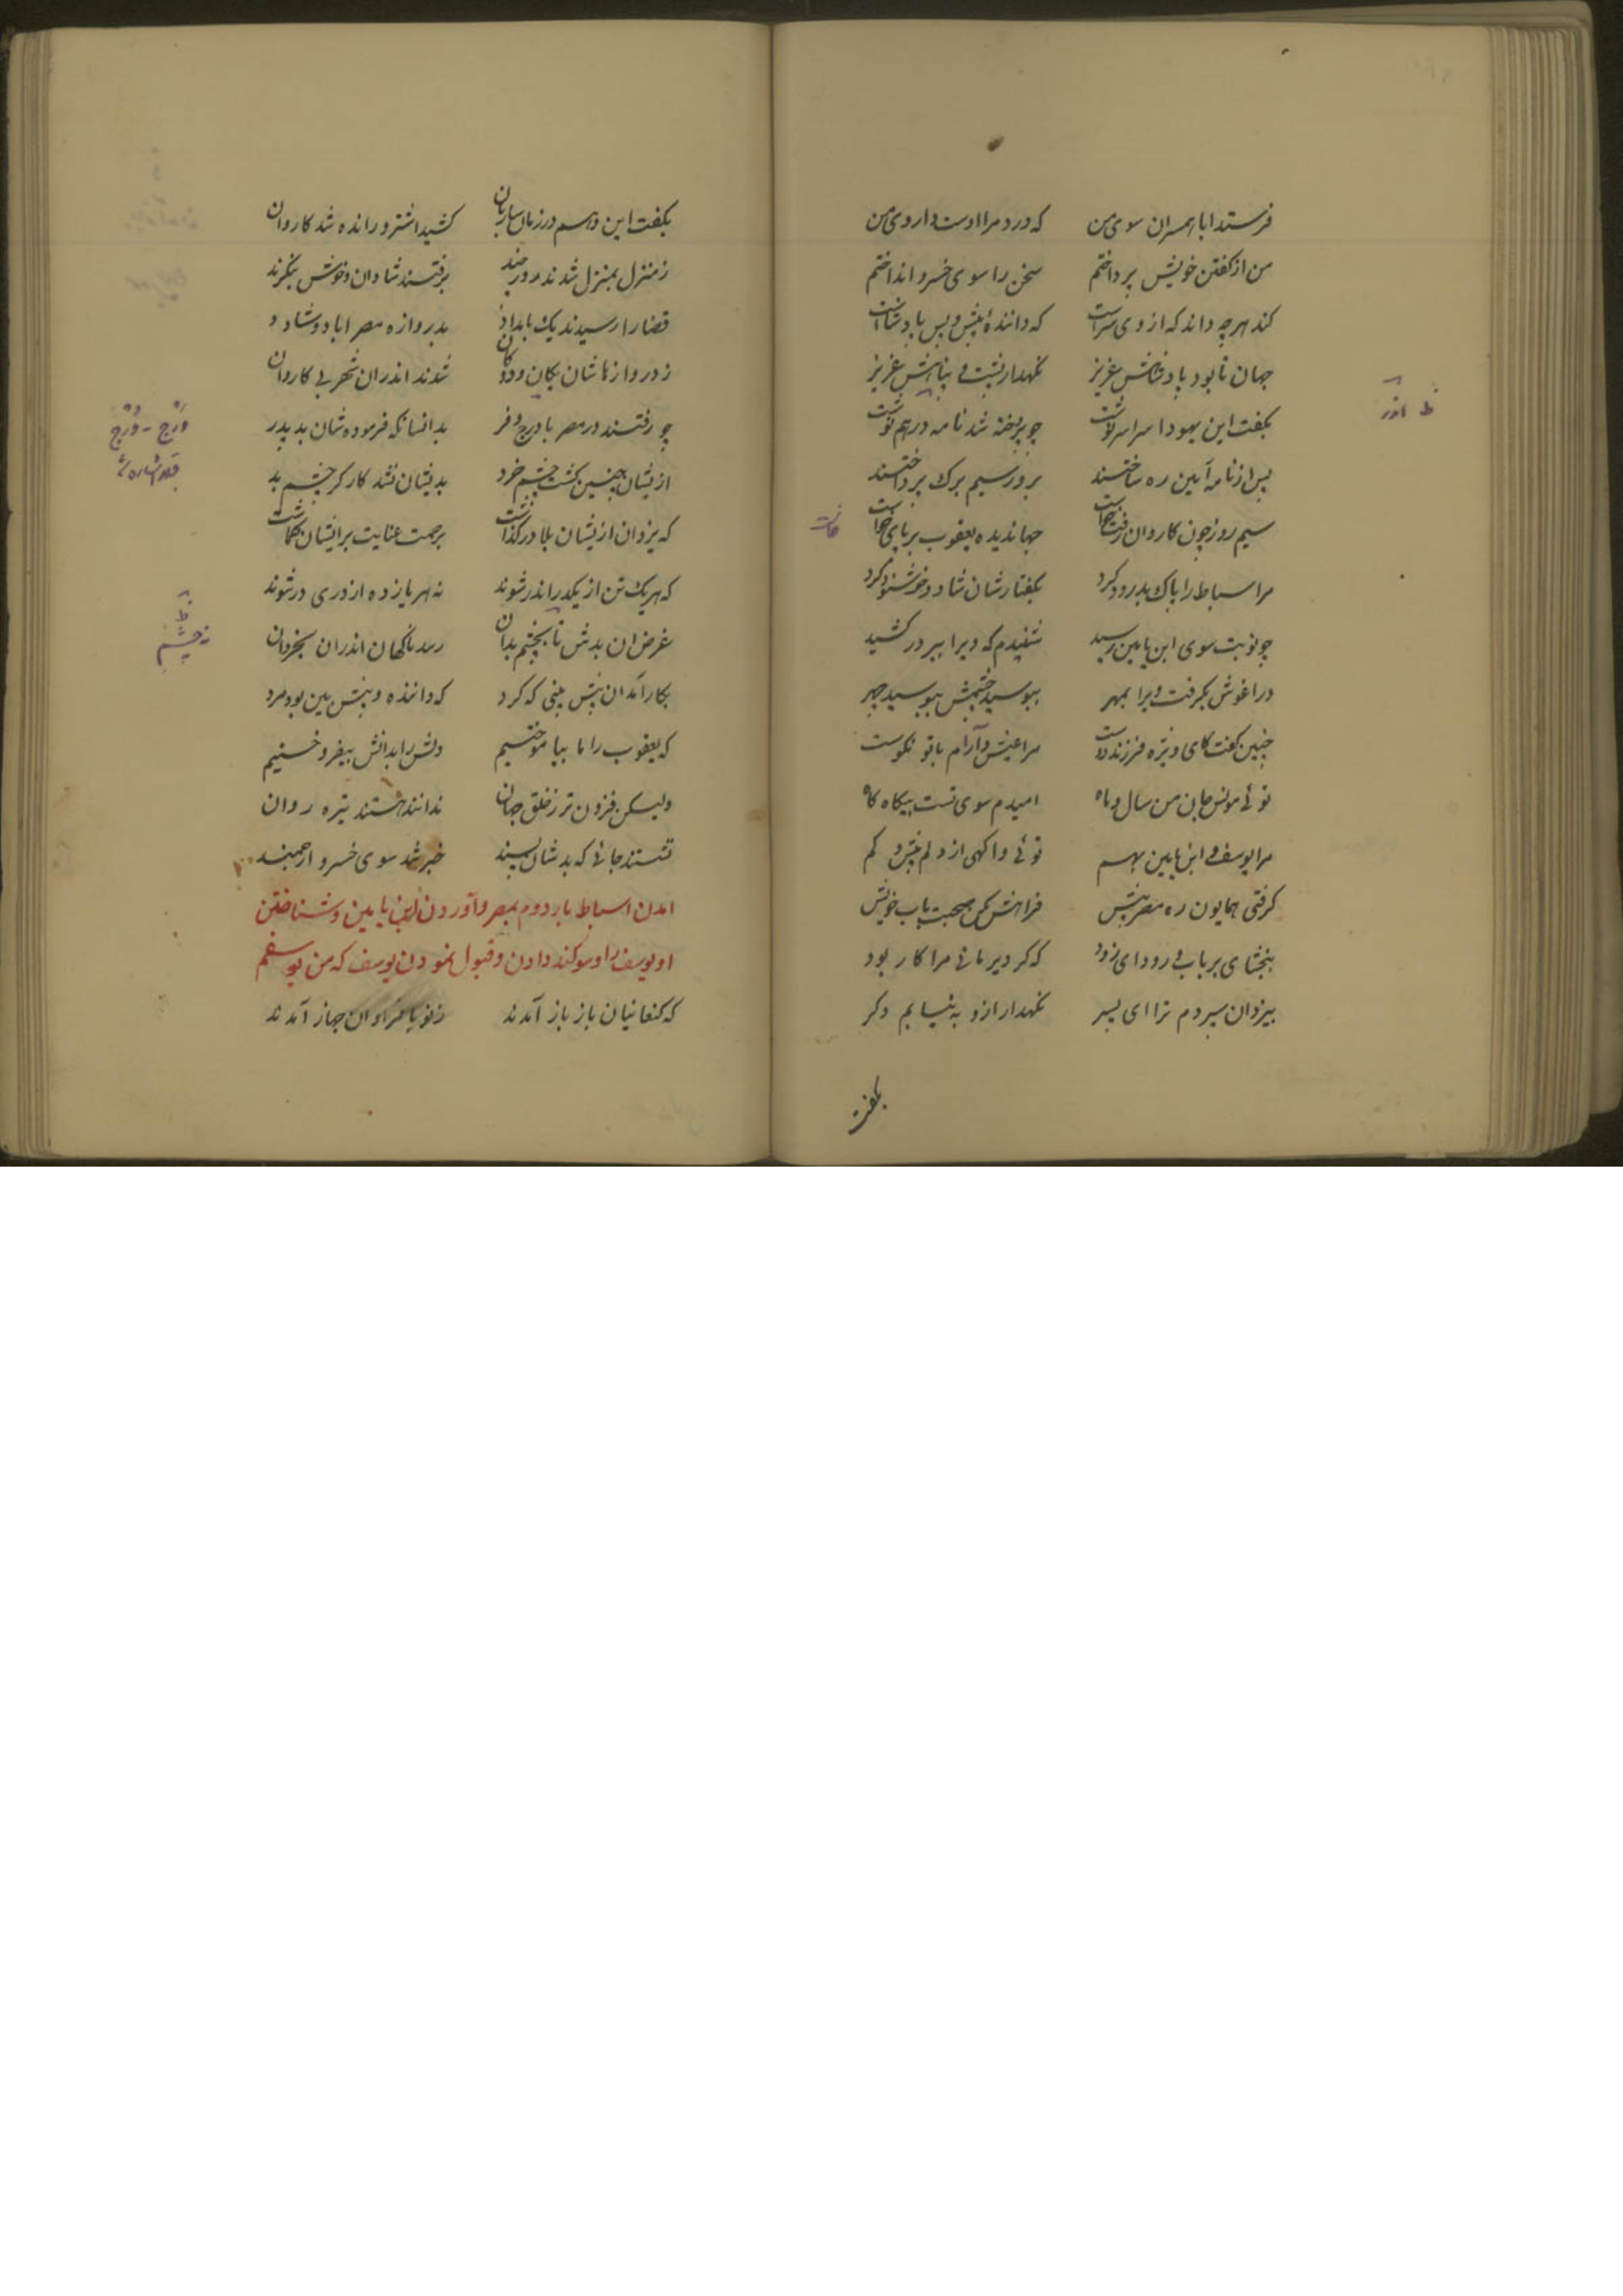 فرستد ابا همسران سوی من که درد مرا اوست داروی من
من از گفتن خویش پرداختم سخن را سوی خسرو انداختم
کند هر چه داند که از وی سزاست که دانندهٔ پیش و پس پادشاست
جهان تا بود باد عزیز نگهدار پشت و پناهش عزیز
بگفت این یهودا سراسر نوشت چو پردخته شد نامه درهم نوشت
پس از نامه آیین ره ساختند بروز سیم برگ پرداختند
سیم روز چون کاروان رفت خواست جهاندیده یعقوب بر پای خواست
مر اسباط را پاک بدرود کرد بگفتارشان شاد و خوشنود کرد
چو نوبت سوی ابن یامین رسید شنیدم که ویرا ببر در کشید
در اغوش بگرفت ویرا بمهر ببوسید چشمش ببوسید چهر
چنین گفت کای ویژه فرزند دوست مرا عیش و آرام با تو نکوست
توئی مونس جان من سال و ماه امیدم سوی تست بیگاه گاه
مرا یوسف و ابن یامین بهم توئی و اگهی از دلم بیش و کم
گرفتی همایون ره مصر پیش فرامش مکن صحبت باب خویش
ببخشای بر باب و رود ای زود که گر دیر مانی مرا کار بود
بیزدان سپردم ترا ای پسر نگهدار ازو به نیابم دگر
بگفت
ظ اندر
خاست
بگفت این وهم در زمان ساربان کشید اشتر و رانده شد کاروان
ز منزل بمنزل شدند روز چند برفتند شادان و خوش بیگزند
قضا را رسیدند یک بامداد بدروازه مصر اباد و شاد
ز دروازها شان یکان و دوکان شدند اندران شهر بی کاروان
چو رفتند در مصر با درج و فر بدانسان که فرموده شان بد پدر
ازیشان چنین گشت چشم خرد بدیشان نشد کارگر چشم بد
که یزدان ازیشان بلا درگذاشت برحمت عنایت بر ایشان گماشت
که هر یک تن از یکدر اندر شوند نه هر یازده از دری در شوند
غرض ان بدش تا بچشم بدان رسد ناگهان اندران بخردان
بکار آمد ان پیش بینی که کرد که داننده و پیش بین بود مرد
که یعقوب را ما بیاموختیم دلش را بدانش بیفروختیم
ولیکن فزون تر ز خلق جهان ندانند هستند تیره روان
نشستند جائی که بدشان پسند خبر شد سوی خسرو ارجمند
امدن اسباط بار دوم بمصر و آوردن ابن یامین و شناختن
او یوسف را و سوکند دادن و قبول نمودن یوسف که من یوسفم
که کنعانیان باز باز آمدند ز نو با فراوان جهاز آمدند
وَرَج - وُرج
ظ
ز چشم